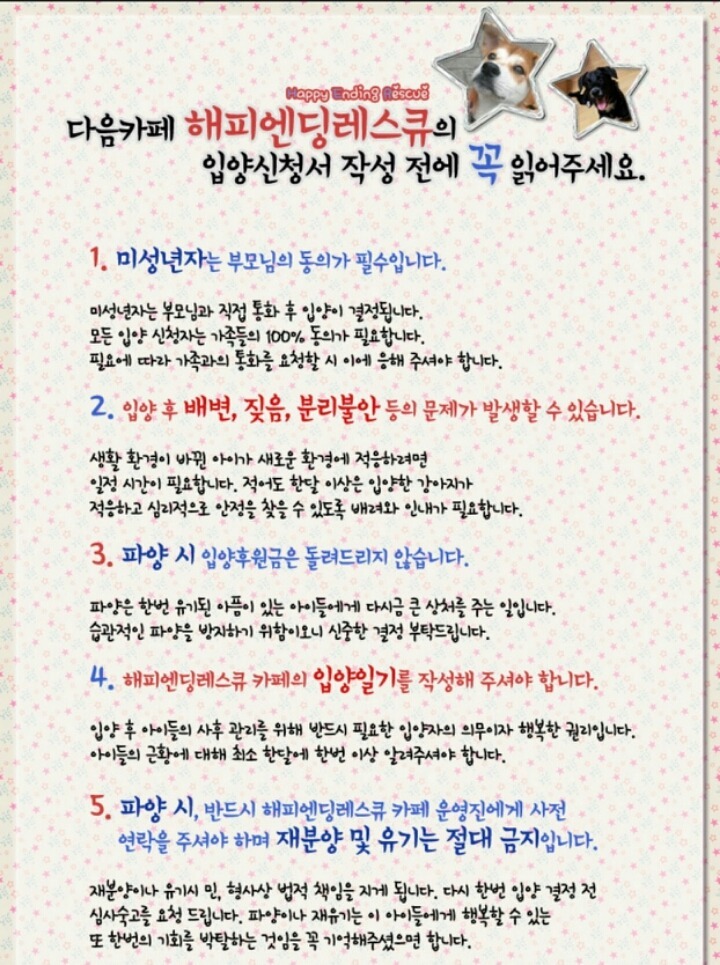 Happy Ending Rescue
다음카페 해피엔딩레스큐의
입양신청서 작성 전에 꼭 읽어주세요.
1. 미성년자는 부모님의 동의가 필수입니다.
미성년자는 부모님과 직접 통화 후 입양이 결정됩니다.
모든 입양 신청자는 가족들의 100% 동의가 필요합니다.
필요에 따라 가족과의 통화를 요청할 시 이에 응해 주셔야 합니다.
2. 입양 후 배변, 짖음, 분리불안 등의 문제가 발생할 수 있습니다.
생활 환경이 바뀐 아이가 새로운 환경에 적응하려면
일정 시간이 필요합니다. 적어도 한달 이상은 입양한 강아지가
적응하고 심리적으로 안정을 찾을 수 있도록 배려와 인내가 필요합니다.
3. 파양 시 입양후원금은 돌려드리지 않습니다.
파양은 한번 유기된 아픔이 있는 아이들에게 다시금 큰 상처를 주는 일입니다.
습관적인 파양을 방지하기 위함이오니 신중한 결정 부탁드립니다.
4. 해피엔딩레스큐 카페의 입양일기를 작성해 주셔야 합니다.
입양 후 아이들의 사후 관리를 위해 반드시 필요한 입양자의 의무이자 행복한 권리입니다.
아이들의 근황에 대해 최소 한달에 한번 이상 알려주셔야 합니다.
5. 파양 시, 반드시 해피엔딩레스큐 카페 운영진에게 사전
연락을 주셔야 하며 재분양 및 유기는 절대 금지입니다.
재분양이나 유기시 민, 형사상 법적 책임을 지게 됩니다. 다시 한번 입양 결정 전
심사숙고를 요청 드립니다. 파양이나 재유기는 이 아이들에게 행복할 수 있는
또 한번의 기회를 박탈하는 것임을 꼭 기억해주셨으면 합니다.